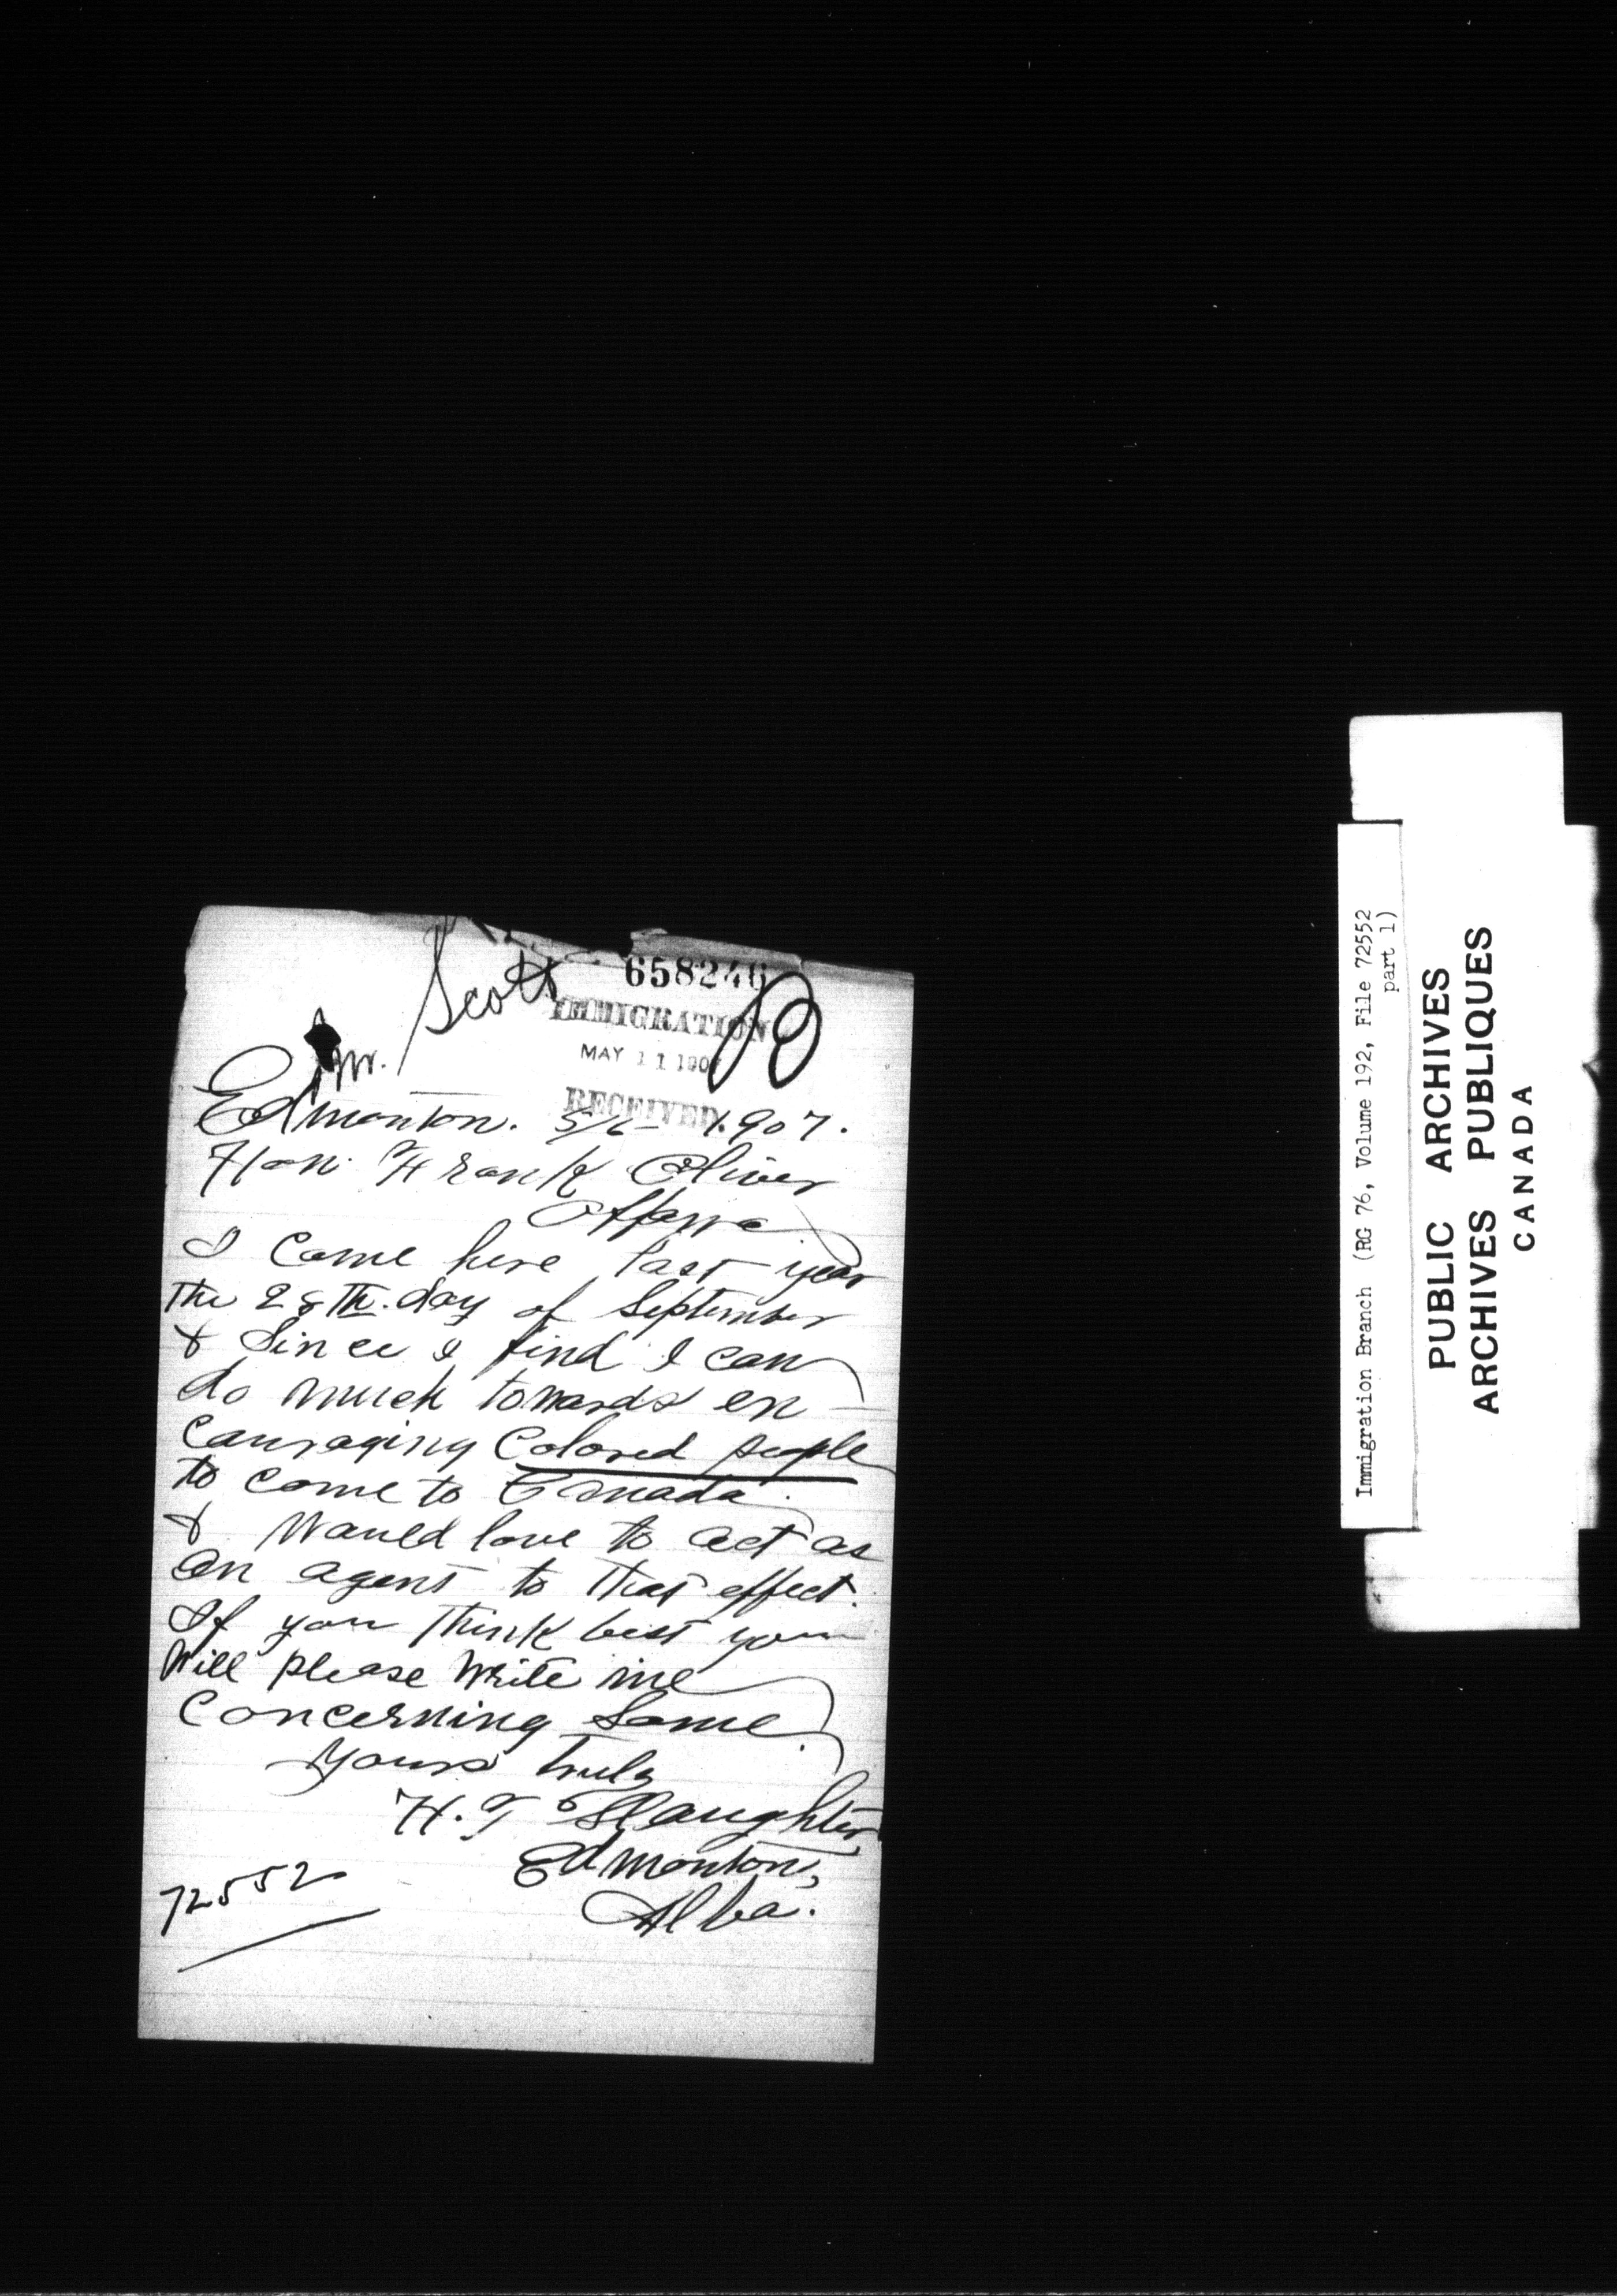 Mr. Scott
658246
IMMIGRATION
MAY 11 1907
RECEIVED.
Edmonton. 5/6- 1907.
Hon. Frank Oliver
Ottawa
I came here last year
the 28th. day of September
& Since I find I can
do much towards en-
couraging Colored people
to come to Canada.
& Would love to act as
an agent to that effect.
If you think best you
Will please write me
Concerning Same.
Yours truly
H. T Slaughter
Edmonton,
Alba.
72552
Immigration Branch (RG 76, Volume 192, File 72552
part 1)
PUBLIC ARCHIVES
ARCHIVES PUBLIQUES
CANADA